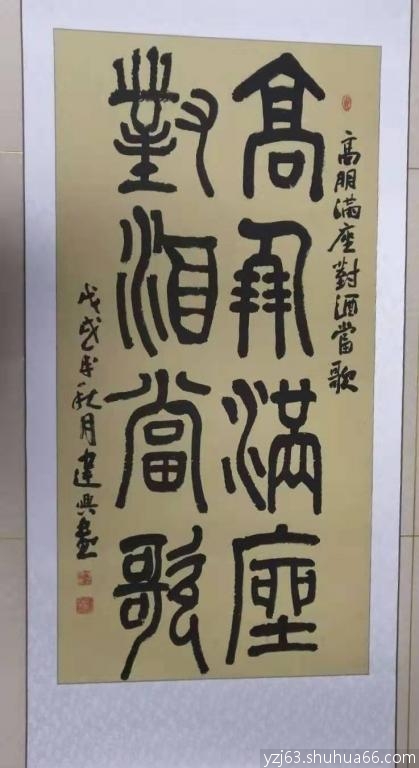 高朋满座對酒當歌
高朋滿座
對酒當歌
戊戌年秋月建興書
yzj63.shuhua66.com